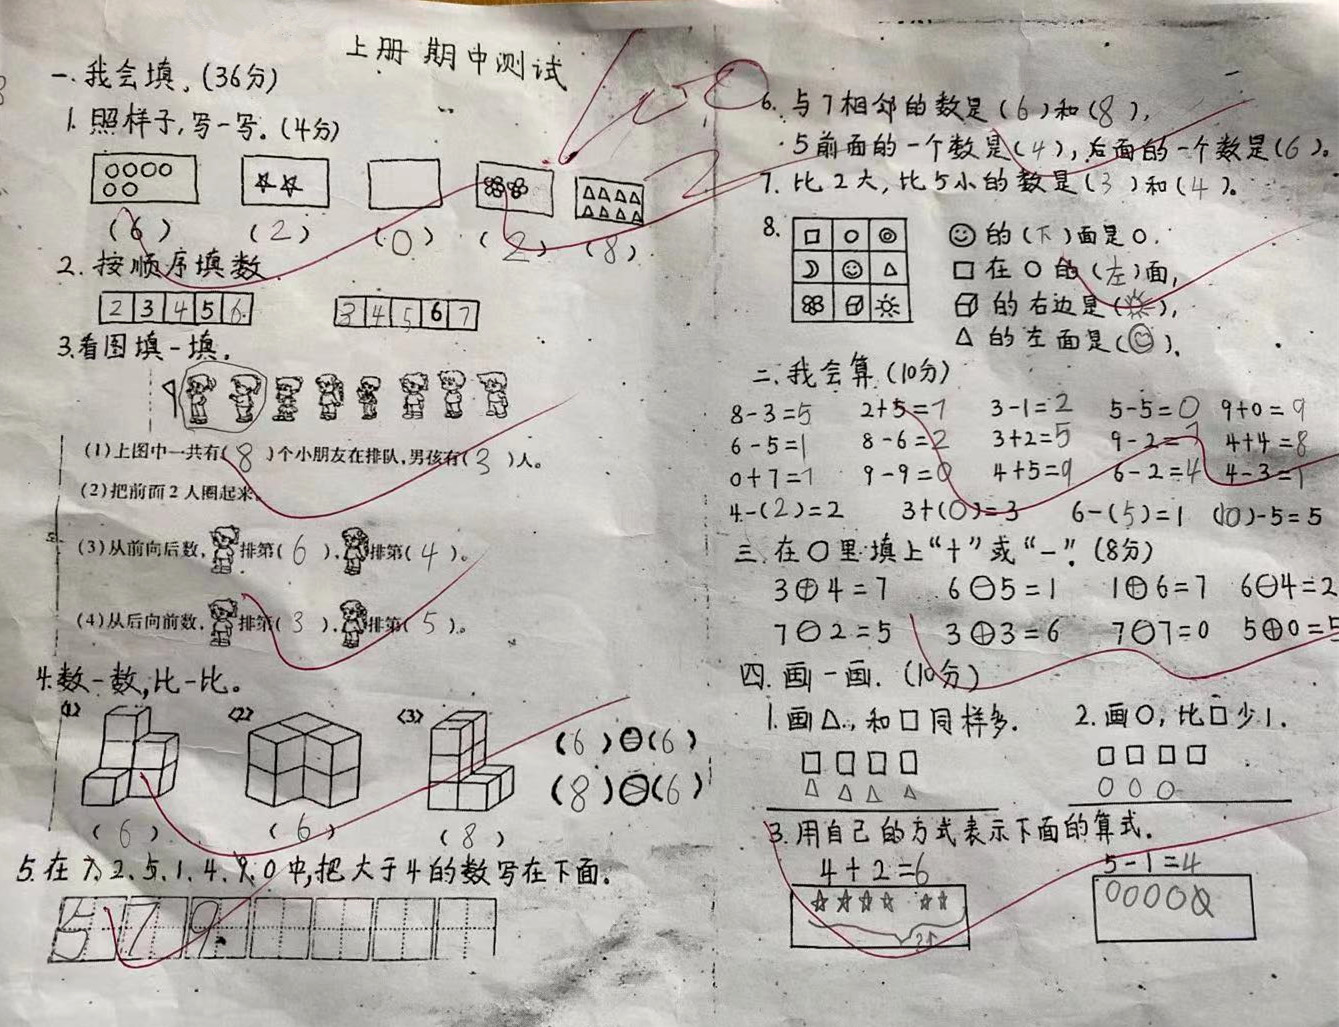 上册 期中测试
100
一、我会填。(36分)
1. 照样子,写一写。(4分)
(6) (2) (0) (2) (8)
2. 按顺序填数
2 3 4 5 6
3 4 5 6 7
3.看图填一填。
(1)上图中一共有(8)个小朋友在排队,男孩有(3)人。
(2)把前面2人圈起来。
(3)从前向后数,排第(6),排第(4)。
(4)从后向前数,排第(3),排第(5)。
4.数一数,比一比。
(1) (2) (3)
(6)=(6)
(8)(6)
(6) (6) (8)
5.在7、2、5、1、4、9、0中,把大于4的数写在下面。
5 7 9
6. 与7相邻的数是(6)和(8),
5前面的一个数是(4),后面的一个数是(6)。
7. 比2大,比5小的数是(3)和(4)。
8.
的(下)面是○.
□在○的(左)面,
的右边是( ),
△的左面是( )。
二、我会算(10分)
8-3=5 2+5=7 3-1=2 5-5=0 9+0=9
6-5=1 8-6=2 3+2=5 9-2=7 4+4=8
0+7=7 9-9=0 4+5=9 6-2=4 4-3=1
4-(2)=2 3+(0)=3 6-(5)=1 (10)-5=5
三、在○里填上“+”或“-”。(8分)
3+4=7 6-5=1 1+6=7 6-4=2
7-2=5 3+3=6 7-7=0 5+0=5
四、画一画.(10分)
1.画△,和□同样多.
2.画○,比□少1.
3.用自己的方式表示下面的算式.
4+2=6
5-1=4